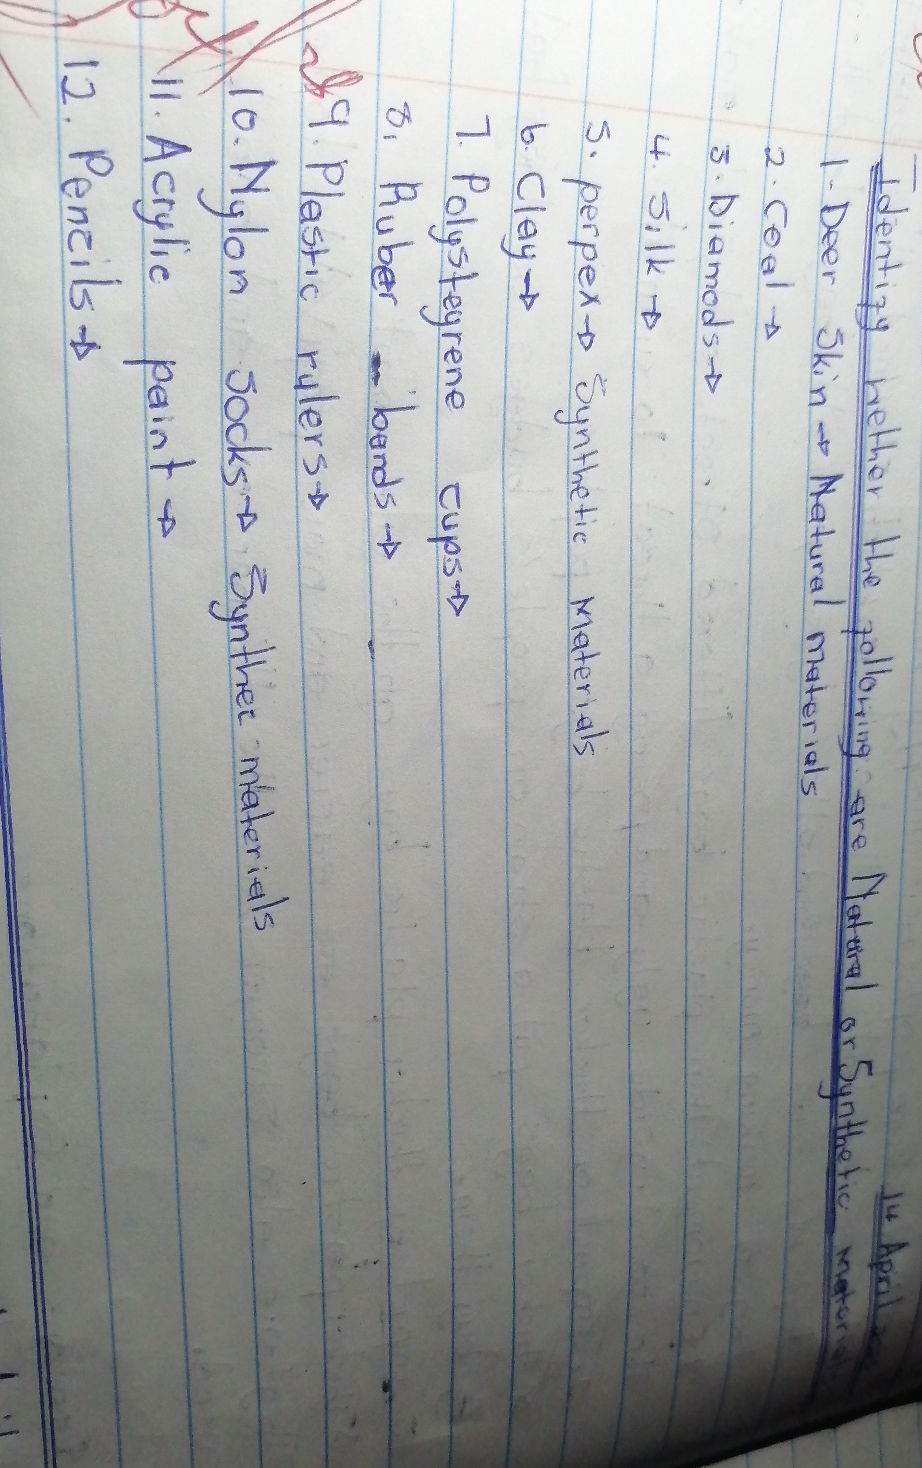 14 April
Identizy hether the zollowing are Natural or Synthetic materials
1. Deer Skin → Natural materials
2. Coal →
3. Diamods →
4. Silk →
5. perpex → Synthetic materials
6. Clay →
7. Polysteyrene cups →
8. Ruber - bands →
9. Plastic rulers →
10. Nylon Socks → Synthec materials
11. Acrylic paint →
12. Pencils →